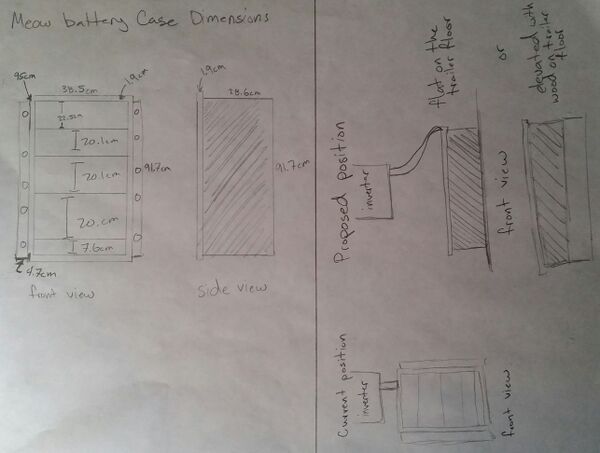 Meow battery Case Dimensions
95cm
38.5cm
1.9cm
22.5cm
20.1cm
20.1cm
91.7cm
20.cm
7.6cm
4.7cm
front view
1.9cm
28.6cm
91.7cm
side view
Proposed position
inverter
flat on the
trailer floor
or
elevated with
wood on trailer
floor
front view
Current position
inverter
front view